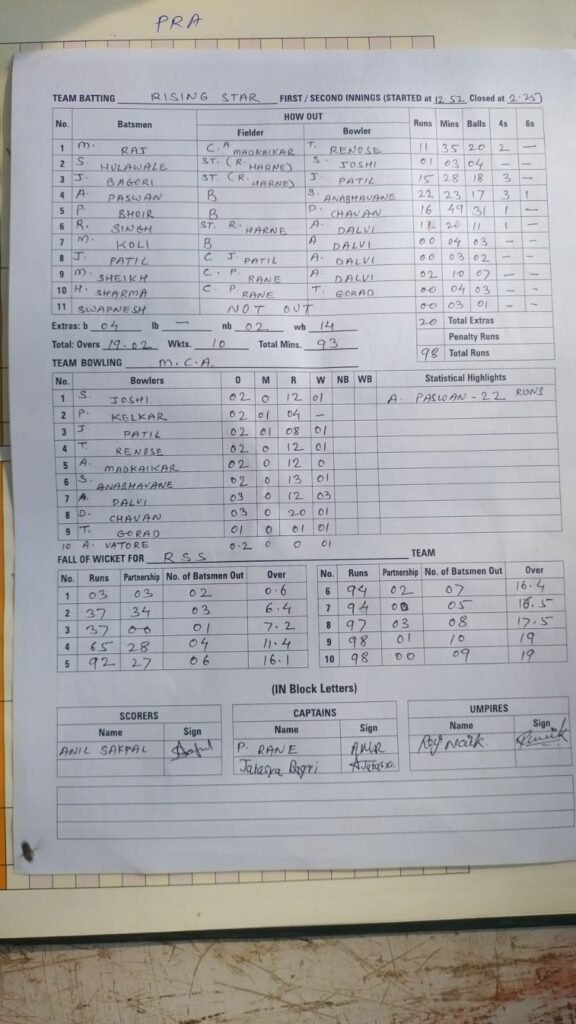 PRA
TEAM BATTING RISING STAR FIRST / SECOND INNINGS (STARTED at 12 52 Closed at 2.25)
No. Batsmen HOW OUT Runs Mins Balls 4s 6s
Fielder Bowler
1 M. RAJ C. A MADKAIKAR T. RENOSE 11 35 20 2 —
2 S. HULAWALE ST. (R. HARNE) S. JOSHI 01 03 04 — —
3 J. BAGORI ST. (R. HARNE) J. PATIL 15 28 18 3 —
4 A. PASWAN B S. ANABHAVANE 22 23 17 3 1
5 P. BHOIR B D. CHAVAN 16 49 31 1 —
6 R. SINGH ST. R. HARNE A. DALVI 11 20 11 1 —
7 M. KOLI B A DALVI 00 04 03 — —
8 J. PATIL C J PATIL A. DALVI 00 03 02 — —
9 M. SHEIKH C. P. RANE A. DALVI 02 10 07 — —
10 H. SHARMA C. P. RANE T. GORAD 00 04 03 — —
11 SWAPNESH NOT OUT 00 03 01 — —
Extras: b 04 lb — nb 02 wb 14 20 Total Extras
Penalty Runs
Total: Overs 19.02 Wkts. 10 Total Mins. 93 98 Total Runs
TEAM BOWLING M.C.A.
No. Bowlers O M R W NB WB Statistical Highlights
1 S. JOSHI 02 0 12 01 A. PASWAN - 22 RUNS
2 P. KELKAR 02 01 04 —
3 J. PATIL 02 01 08 01
4 T. RENOSE 02 0 12 01
5 A. MADKAIKAR 02 0 12 0
6 S. ANABHAVANE 02 0 13 01
7 A DALVI 03 0 12 03
8 D. CHAVAN 03 0 20 01
9 T. GORAD 01 0 01 01
10 A. VATORE 0.2 0 0 01
FALL OF WICKET FOR R S S TEAM
No. Runs Partnership No. of Batsmen Out Over No. Runs Partnership No. of Batsmen Out Over
1 03 03 02 0.6 6 94 02 07 16.4
2 37 34 03 6.4 7 94 00 05 16.5
3 37 00 01 7.2 8 97 03 08 17.5
4 65 28 04 11.4 9 98 01 10 19
5 92 27 06 16.1 10 98 00 09 19
(IN Block Letters)
SCORERS CAPTAINS UMPIRES
Name Sign Name Sign Name Sign
ANIL SAKPAL P. RANE Raj Naik.
Jatasya Bagri